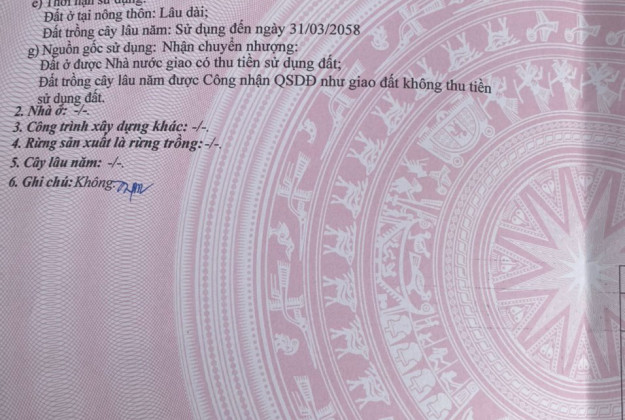 e) Thời hạn sử dụng:
Đất ở tại nông thôn: Lâu dài;
Đất trồng cây lâu năm: Sử dụng đến ngày 31/03/2058
g) Nguồn gốc sử dụng: Nhận chuyển nhượng:
Đất ở được Nhà nước giao có thu tiền sử dụng đất;
Đất trồng cây lâu năm được Công nhận QSDĐ như giao đất không thu tiền
sử dụng đất.
2. Nhà ở: -/-.
3. Công trình xây dựng khác: -/-.
4. Rừng sản xuất là rừng trồng: -/-.
5. Cây lâu năm: -/-.
6. Ghi chú: Không.